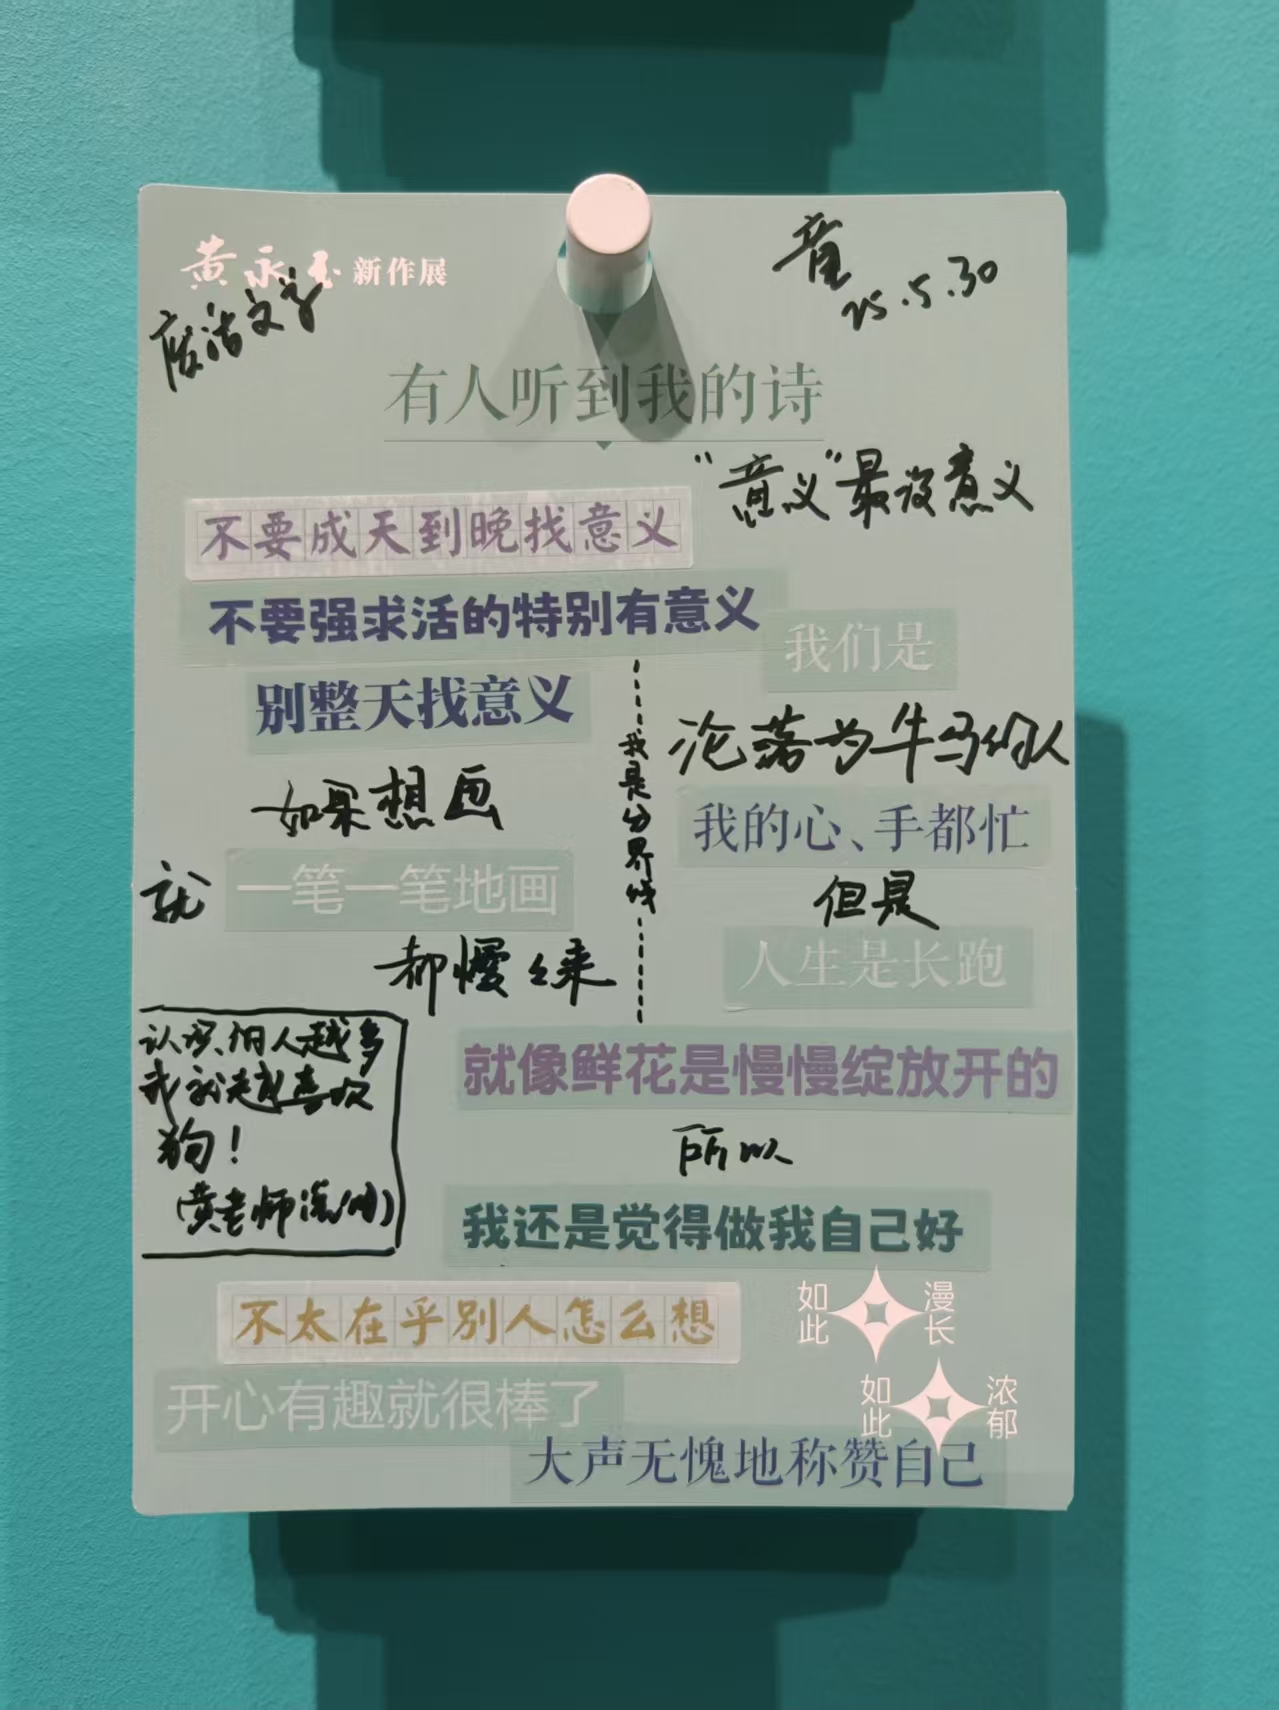 黄永玉新作展
废话文学
童
25.5.30
有人听到我的诗
“意义”最没意义
不要成天到晚找意义
不要强求活的特别有意义
别整天找意义
如果想画
就 一笔一笔地画
都慢々来
我是分界线
我们是
沦落为牛马的人
我的心、手都忙
但是
人生是长跑
认识的人越多
我就越喜欢
狗!
(黄老师说的)
就像鲜花是慢慢绽放开的
所以
我还是觉得做我自己好
不太在乎别人怎么想
开心有趣就很棒了
大声无愧地称赞自己
如此漫长
如此浓郁